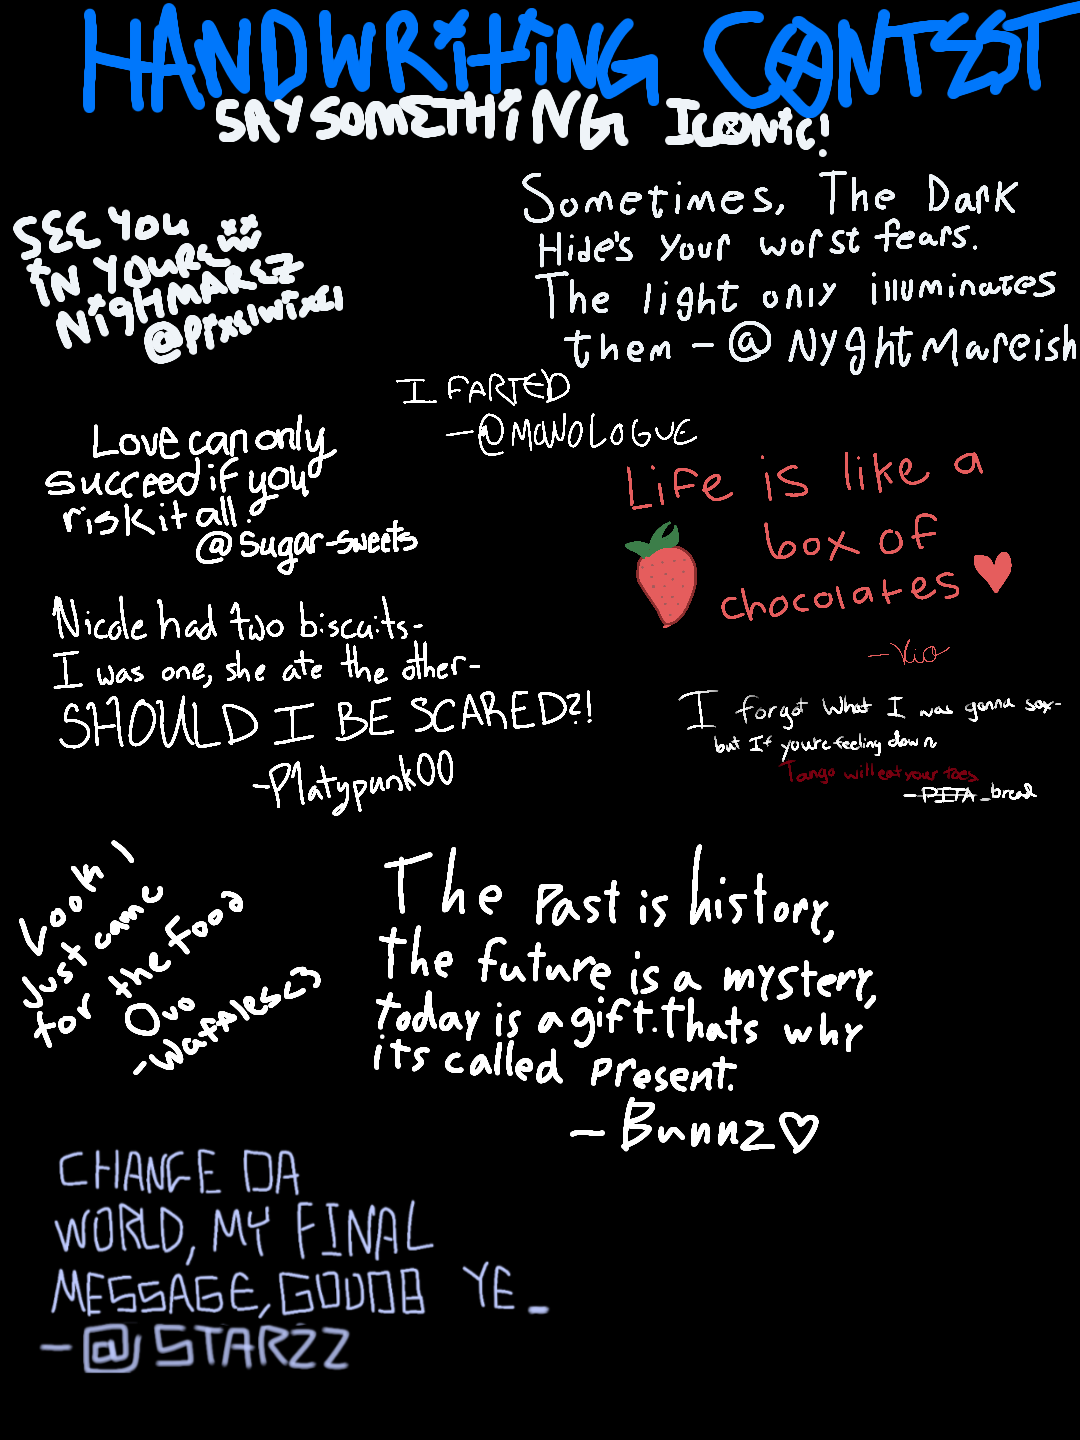 HANDWRiTiNG CONTEST
SAY SOMETHiNG ICONiC!
SEE YOU
iN YOURE
NigHMAREZ
@prxslwixsl
Sometimes, The Dark
Hide's your worst fears.
The light only illuminates
them - @NyghtMareish
I FARTED
-@MONOLOGUE
Love can only
succeed if you
risk it all.
@Sugar-sweets
Life is like a
box of
chocolates ♥
-Xio
Nicole had two biscuits-
I was one, she ate the other-
SHOULD I BE SCARED?!
-Platypunk00
I forgot What I was gonna say-
but If youre feeling down
Tango will eat your toes
-PITA_bread
Look I
Just came
for the Food
OvO
-Waffles<3
The Past is history,
the future is a mystery,
today is a gift. thats why
its called present.
- Bunnz♡
CHANGE DA
WORLD, MY FINAL
MESSAGE, GOODB YE_
-@STARZZ